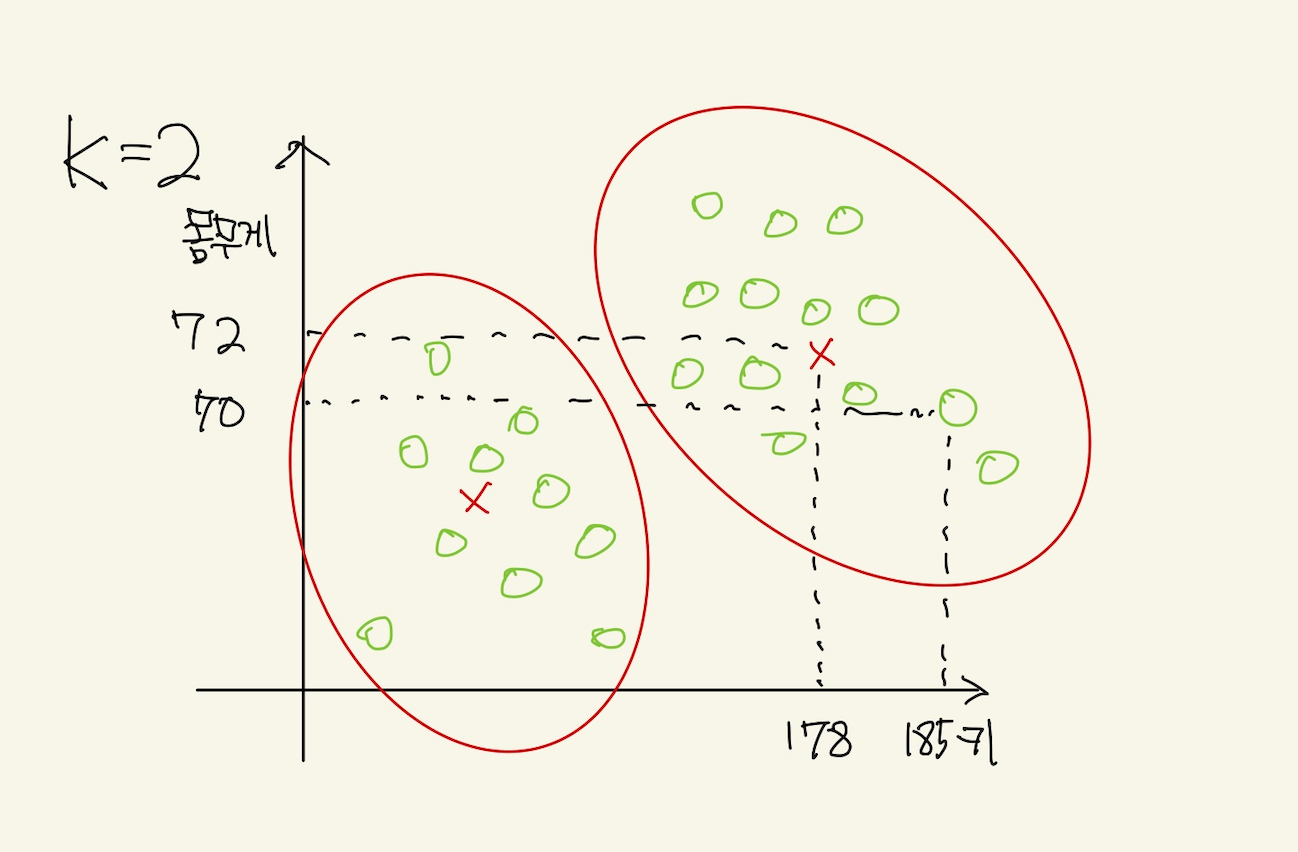 k=2
몸무게
72
70
178
185 키